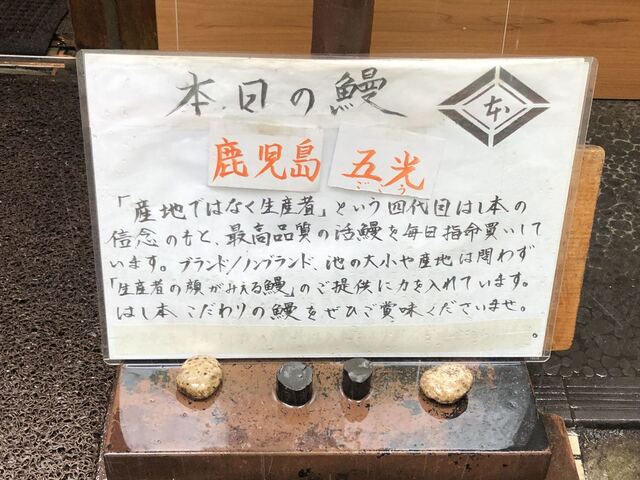 本日の鰻
本
鹿児島 五光
ごこう
「産地ではなく生産者」という四代目はし本の
信念のもと、最高品質の活鰻を毎日指命買いして
います。ブランド/ノンブランド、池の大小や産地は問わず
「生産者の顔がみえる鰻」のご提供に力を入れています。
はし本こだわりの鰻をぜひご賞味くださいませ。